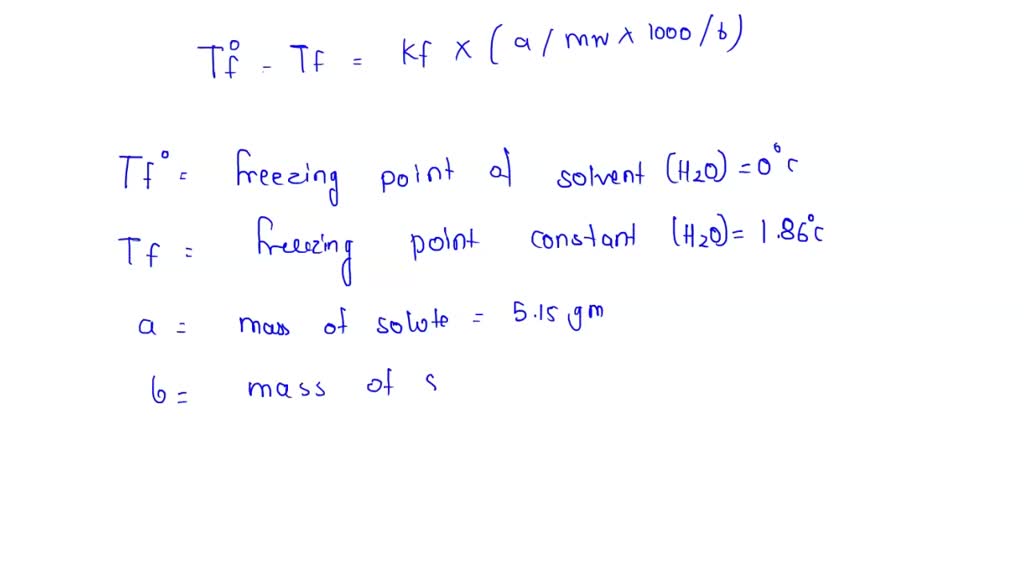 Tf° - Tf = Kf × (a / mw × 1000 / b)
Tf° = freezing point of solvent (H2O) = 0°c
Tf = freezing point constant (H2O) = 1.86°c
a = mass of solute = 5.15 gm
b = mass of s